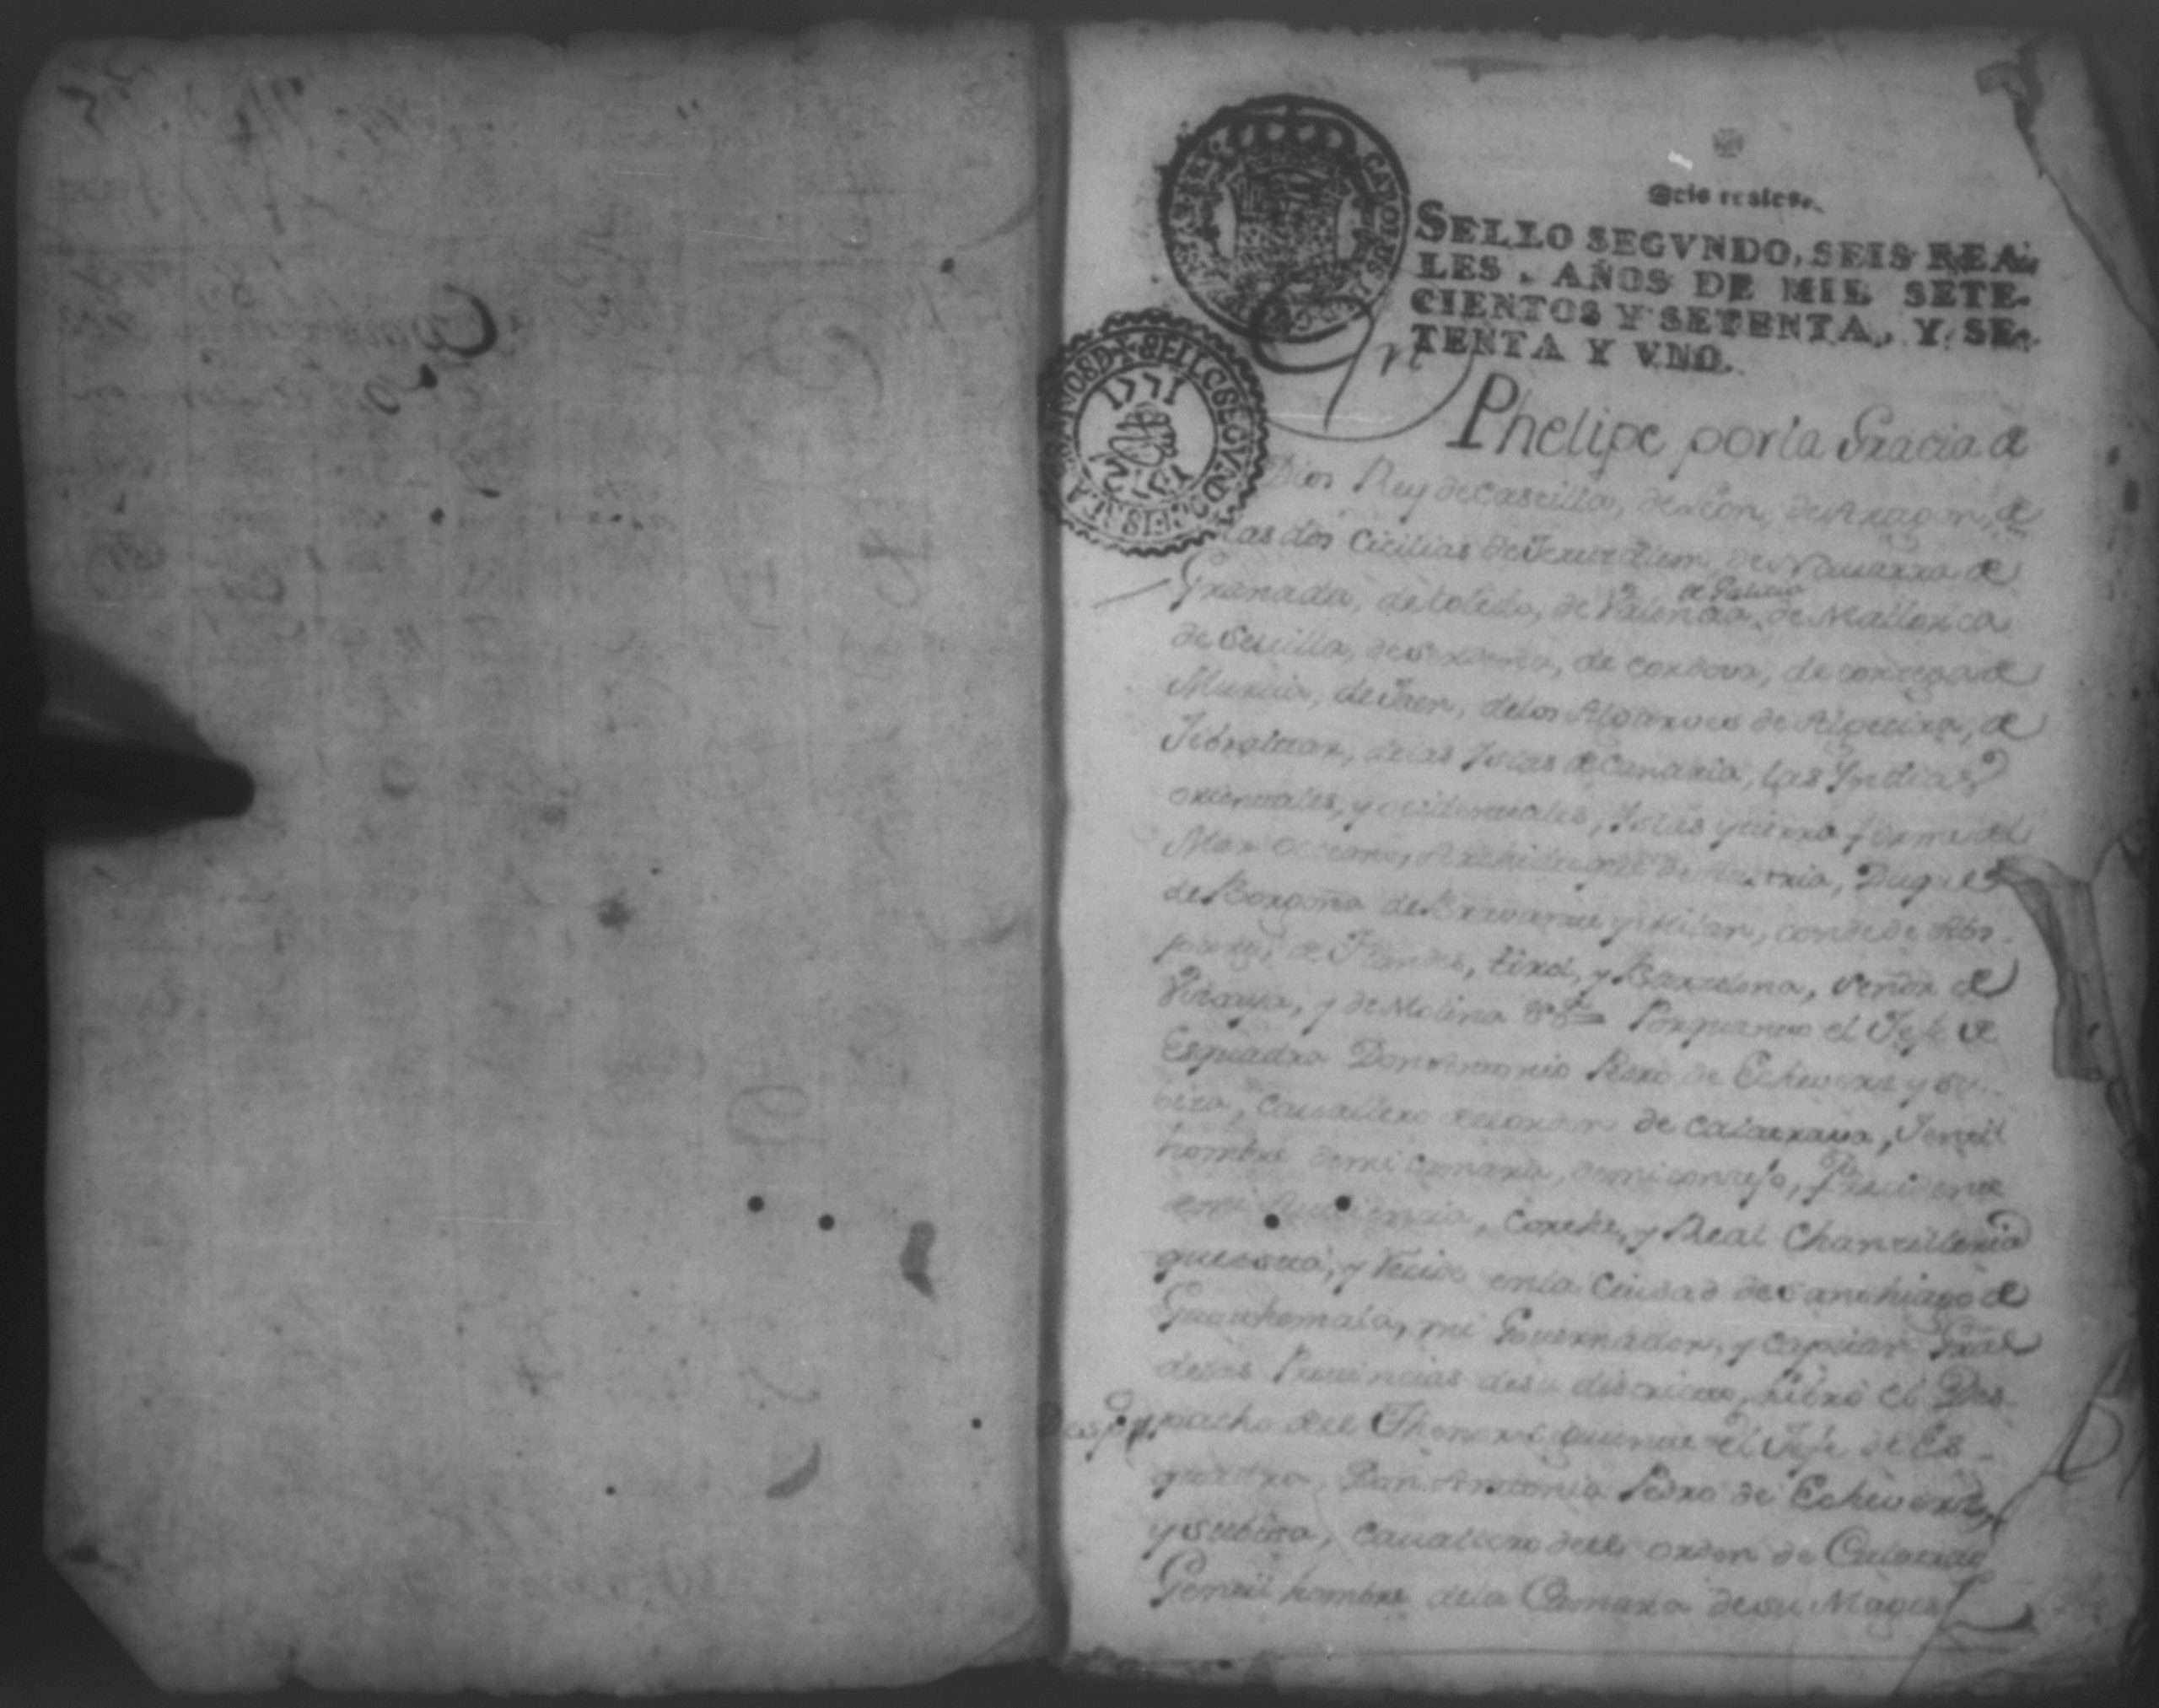 Seis reales.
SELLO SEGVNDO, SEIS REA-
LES, AÑOS DE MIL SETE-
CIENTOS Y SETENTA, Y SE-
TENTA Y VNO.
CAROLVS III
SELLO SEGVNDO
1771
Dn Phelipe por la Gracia de
Dios Rey de Castilla, de Leon, de Aragon, de
las dos Cicilias de Jerusalem, de Nauarra de
Granada, de toledo, de Valencia, de Galicia, de Mallorca
de Seuilla, de Serdeña, de cordova, de corcega de
Murcia, de Jaen, delos Algarves de Algecira, de
Jibraltar, delas Yslas de Canaria, las Yndias
orientales, y occidentales, Yslas y tierra firme del
Mar occeano, Archiduque de Austria, Duque
de Borgoña de Bravante y Milan, conde de Abs-
purg, de Flandes, tirol, y Barcelona, Señor de
Viscaya, y de Molina &ª Porquanto el Jefe de
Esquadra Don Antonio Pedro de Echevers y Su-
biza, Cavallero del orden de Calatrava, Jentil
hombre de mi Camara, de mi consejo, Precidente
en mi Audiencia, Corte, y Real Chancilleria
que esta, y recide en la Ciudad de Santhiago de
Guathemala, mi Governador, y Capitan Gral
de las Provincias de su distrito, Libro el Des-
Desp.º pacho del Thenor siguiente el Jefe de Es-
quadra, Don Antonio Pedro de Echevers,
y Subiza, Cavallero del orden de Calatrav
Gentil hombre dela Camara de su Magest